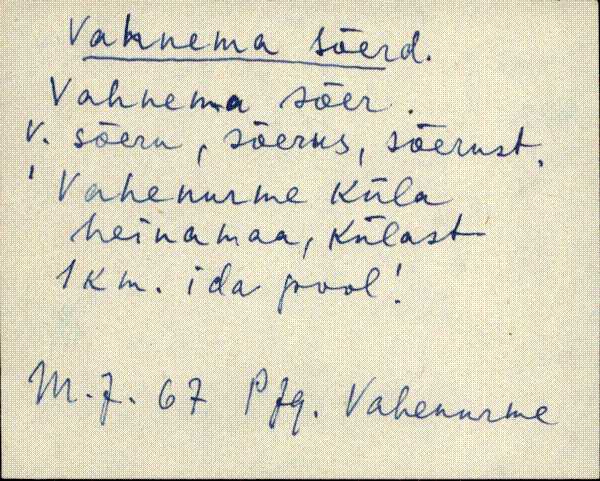 Vahnema sõerd.
Vahnema sõer.
v. sõeru, sõerus, sõerust.
'Vahenurme küla
heinamaa, külast
1 km. ida pool!
M.J. 67 PJg. Vahenurme